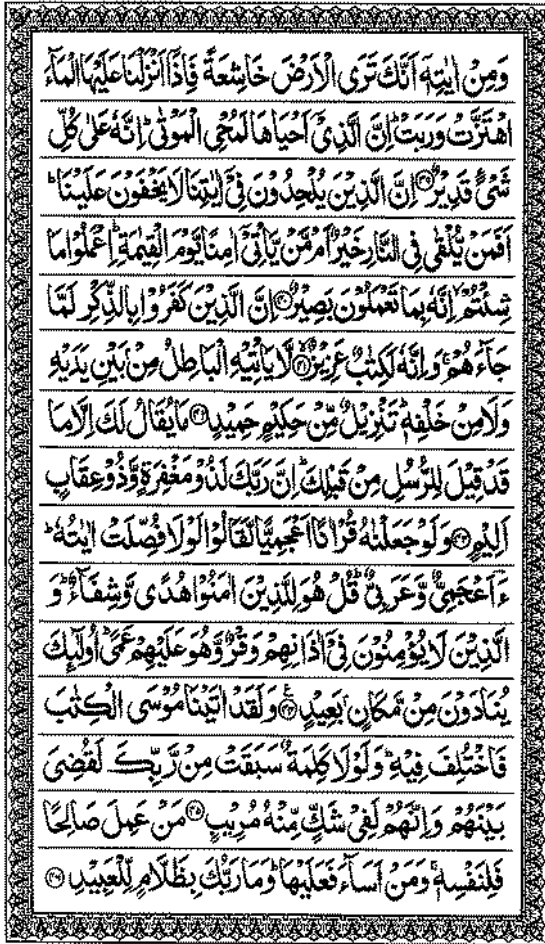 وَمِنْ اٰيٰتِهٖۤ اَنَّكَ تَرَى الْاَرْضَ خَاشِعَةً فَاِذَاۤ اَنْزَلْنَا عَلَيْهَا الْمَآءَ
اهْتَزَّتْ وَرَبَتْ ؕ اِنَّ الَّذِيْۤ اَحْيَاهَا لَمُحْيِ الْمَوْتٰى ؕ اِنَّهٗ عَلٰى كُلِّ
شَيْءٍ قَدِيْرٌ ۝۳۹ اِنَّ الَّذِيْنَ يُلْحِدُوْنَ فِيْۤ اٰيٰتِنَا لَا يَخْفَوْنَ عَلَيْنَا ؕ
اَفَمَنْ يُّلْقٰى فِي النَّارِ خَيْرٌ اَمْ مَّنْ يَّاْتِيْۤ اٰمِنًا يَّوْمَ الْقِيٰمَةِ ؕ اِعْمَلُوْا مَا
شِئْتُمْ ۙ اِنَّهٗ بِمَا تَعْمَلُوْنَ بَصِيْرٌ ۝۴۰ اِنَّ الَّذِيْنَ كَفَرُوْا بِالذِّكْرِ لَمَّا
جَآءَهُمْ ۚ وَاِنَّهٗ لَكِتٰبٌ عَزِيْزٌ ۝۴۱ لَّا يَاْتِيْهِ الْبَاطِلُ مِنْۢ بَيْنِ يَدَيْهِ
وَلَا مِنْ خَلْفِهٖ ؕ تَنْزِيْلٌ مِّنْ حَكِيْمٍ حَمِيْدٍ ۝۴۲ مَا يُقَالُ لَكَ اِلَّا مَا
قَدْ قِيْلَ لِلرُّسُلِ مِنْ قَبْلِكَ ؕ اِنَّ رَبَّكَ لَذُوْ مَغْفِرَةٍ وَّذُوْ عِقَابٍ
اَلِيْمٍ ۝۴۳ وَلَوْ جَعَلْنٰهُ قُرْاٰنًا اَعْجَمِيًّا لَّقَالُوْا لَوْلَا فُصِّلَتْ اٰيٰتُهٗ ؕ
ءَاَعْجَمِيٌّ وَّعَرَبِيٌّ ؕ قُلْ هُوَ لِلَّذِيْنَ اٰمَنُوْا هُدًى وَّشِفَآءٌ ؕ وَ
الَّذِيْنَ لَا يُؤْمِنُوْنَ فِيْۤ اٰذَانِهِمْ وَقْرٌ وَّهُوَ عَلَيْهِمْ عَمًى ؕ اُولٰٓئِكَ
يُنَادَوْنَ مِنْ مَّكَانٍۭ بَعِيْدٍ ۝۴۴ وَلَقَدْ اٰتَيْنَا مُوْسَى الْكِتٰبَ
فَاخْتُلِفَ فِيْهِ ؕ وَلَوْلَا كَلِمَةٌ سَبَقَتْ مِنْ رَّبِّكَ لَقُضِيَ
بَيْنَهُمْ ؕ وَاِنَّهُمْ لَفِيْ شَكٍّ مِّنْهُ مُرِيْبٍ ۝۴۵ مَنْ عَمِلَ صَالِحًا
فَلِنَفْسِهٖ ۚ وَمَنْ اَسَآءَ فَعَلَيْهَا ؕ وَمَا رَبُّكَ بِظَلَّامٍ لِّلْعَبِيْدِ ۝۴۶